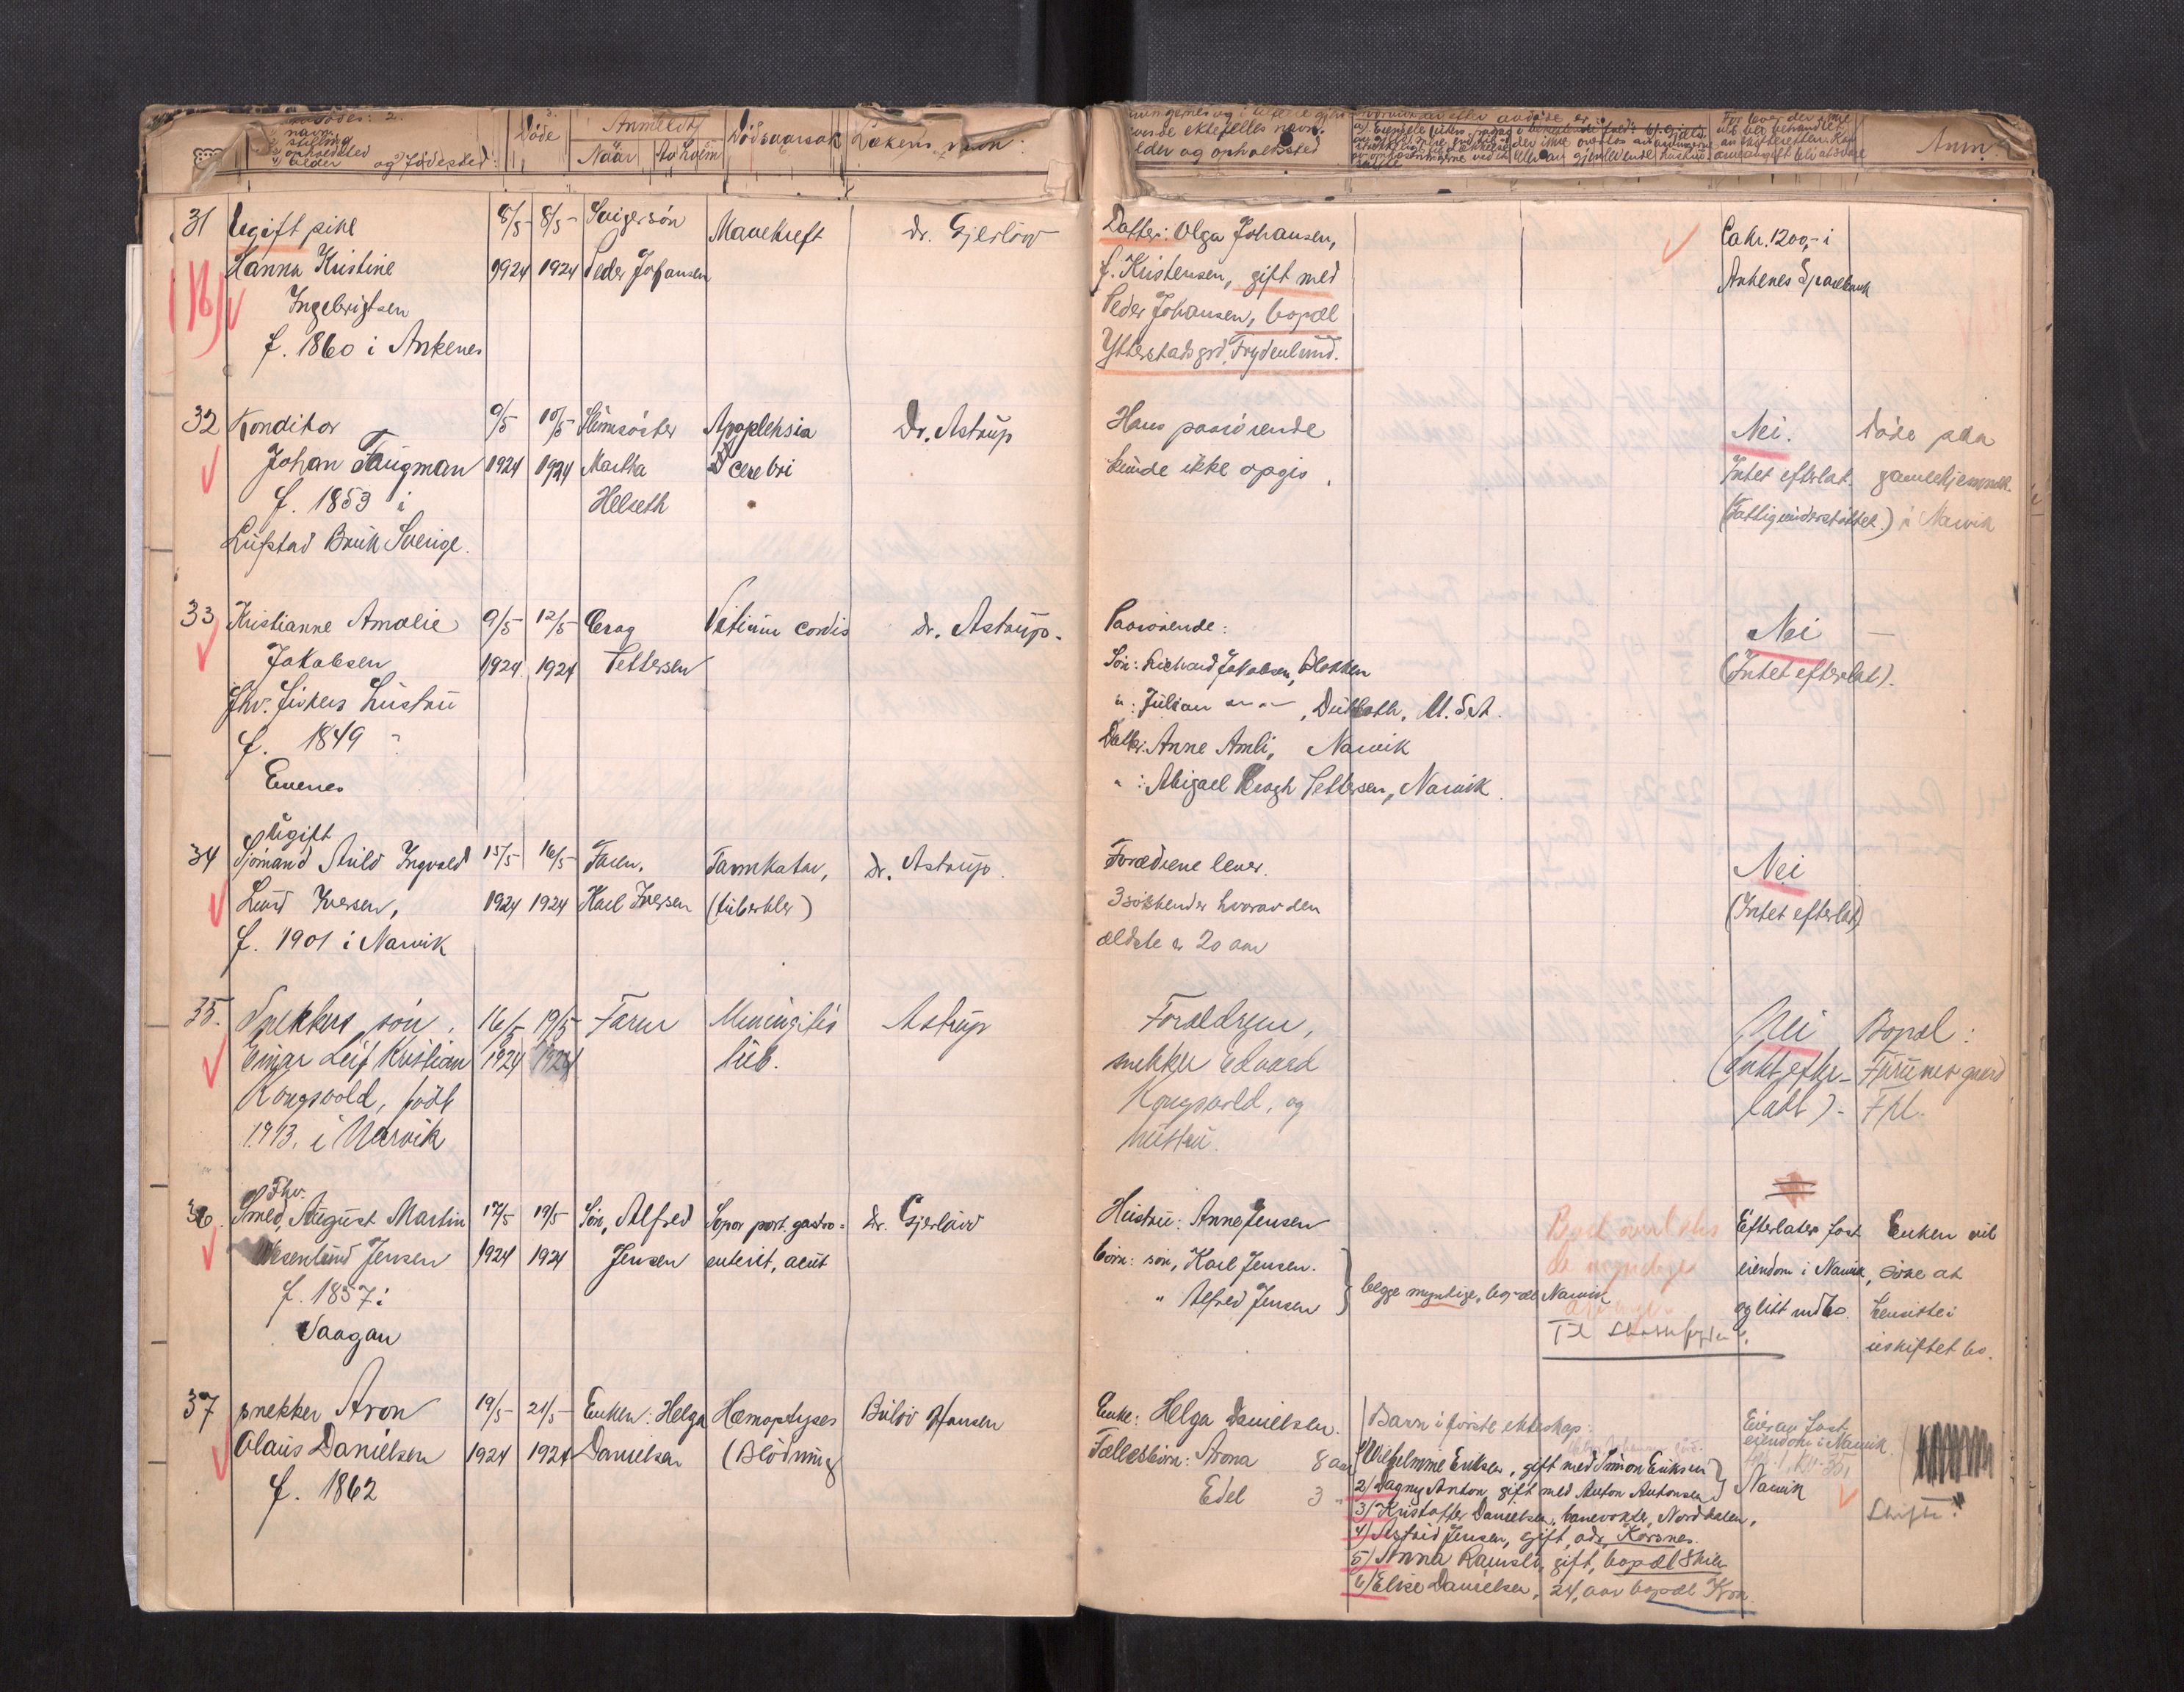 navn
stilling
opholdsted
alder og fødested:
Døde
Anmeldt
Naar
Av hvem
Dødsaarsak
Lækens navn:
ektefelles navn.
alder og opholdssted
Anm.
31 Ugift pike
Hanna Kristine
Ingebrigtsen
f. 1860 i Ankenes
8/5 1924
8/5 1924
Svigersøn
Peder Johansen
Mavekreft
dr. Gjerløw
Datter: Olga Johansen,
f. Kristensen, gift med
Peder Johansen, bopæl
Ytterstads grd. Frydenlund.
Ca kr. 1200,- i
Ankenes Sparebank
32 Konditor
Johan Faugman
f. 1853 i
Lufstad Bruk Sverige.
9/5 1924
10/5 1924
Martha
Helseth
Apopleksia
cerebri
Dr. Astrup
Hans paarørende
kunde ikke opgis.
Nei.
Intet efterlat.
(Fattigunderstøttet.)
Døde paa
gamlehjemmet
i Narvik
33 Kristianne Amalie
Jakobsen
fhv. fiskers hustru
f. 1849
Evenes
9/5 1924
12/5 1924
Pettersen
Vitium cordis
dr. Astrup.
Paarørende:
Søn: Richard Jakobsen, Blokken
" : Julian " " , Duluth, U.S.A.
Datter: Anne Amli, Narvik
" : Abigael Krogh Pettersen, Narvik.
Nei
(Intet efterlat).
34 Ugift
Sjømand Arild Ingvald
Lund Iversen,
f. 1901 i Narvik
15/5 1924
16/5 1924
Faren,
Karl Iversen
Tarmkatar,
(tuberkler)
dr. Astrup.
Forældrene lever.
3 søskende hvorav den
ældste er 20 aar
Nei
(Intet efterlat)
35. Snekkers søn,
Einar Leif Kristian
Kongsvold, født
1913. i Narvik
16/5 1924
19/5 1924
Faren
Meningitis
tub.
Astrup
Forældrene,
snekker Edvard
Kongsvold, og
hustru.
Nei
(Intet efter-
latt).
Bopæl:
Furunes gaard
Frl.
36. Fhv.
Smed, August Martin
Wesenlund Jensen
f. 1857 i
Vaagan
17/5 1924
19/5 1924
Søn, Alfred
Jensen
Sopor post. gastro-
enterit, acut
Dr. Gjerløw
Hustru: Anne Jensen
børn: søn, Karl Jensen.
" Alfred Jensen
begge myndige, bopæl Narvik
Efterlater fast
eiendom i Narvik,
og litt indbo.
Enken vil
søke at
hensitte i
uskiftet bo.
37 snekker Aron
Olaus Danielsen
f. 1862
19/5 1924
21/5 1924
Enken: Helga
Danielsen
Hæmoptyses
(Blødning)
Bülow Hansen
Enke: Helga Danielsen.
Fællesbørn: Arona 8 aar
Edel 3 "
Barn i første ekteskap:
1) Vilhelmine Eriksen, gift med Simon Eriksen
2) Dagny Anton, gift med Anton Antonsen
Narvik
3) Kristoffer Danielsen, banevokter, Norddalen,
4) Astrid Jensen, gift, adr. Korsnes.
5) Anna Ramslo, gift, bopæl Skien
6) Elise Danielsen, 24, aar bopæl Kra.
Eier av fast
eiendom i Narvik.
Skifte.